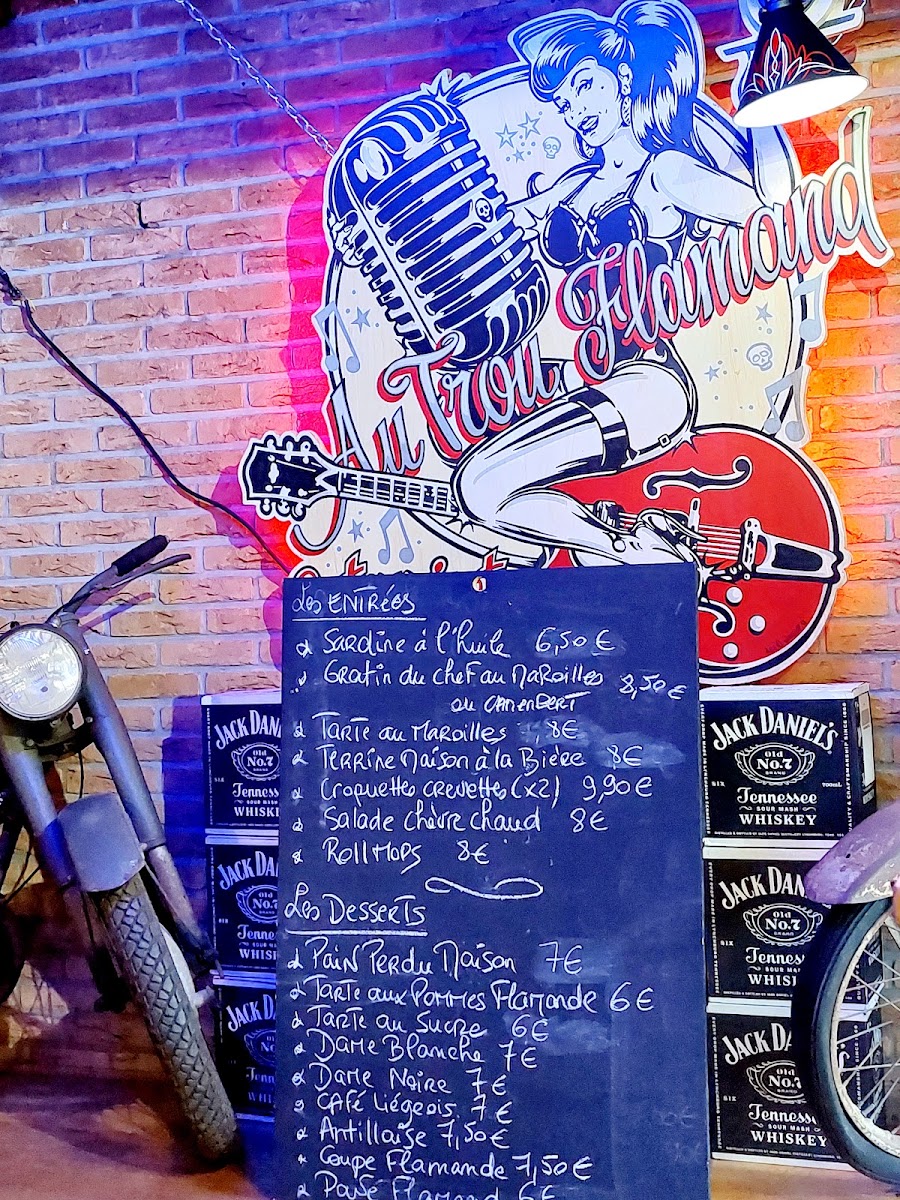 Au Trou Flamand
Les ENTRéES
Sardine à l'huile 6,50 €
Gratin du chef au Maroilles
ou CAMEMBERT 8,50 €
Tarte au Maroilles 8€
Terrine Maison à la Bière 8€
Croquettes crevettes (x2) 9,90 €
Salade chèvre chaud 8€
Roll Mops 8€
Les Desserts
Pain Perdu Maison 7€
Tarte aux Pommes Flamande 6€
Tarte au Sucre 6€
Dame Blanche 7€
Dame Noire 7€
CAFé Liégeois 7€
Antillaise 7,50€
Coupe Flamande 7,50€
Flamand 6€
JACK DANIEL'S
Old
No.7
BRAND
SIX
700mL
Tennessee
SOUR MASH
WHISKEY
JACK DAN
Old
No.7
BRAND
SIX
Tenness
SOUR MAS
WHISK
JACK DA
Old
No.7
SIX
Tennessee
SOUR MASH
WHISKEY
JACK DANI
Old
No.7
BRAND
SIX
Tennes
SOUR MA
WHISKE
JACK DA
Tenne
WHISK
JACK DA
Tenn
WHIS